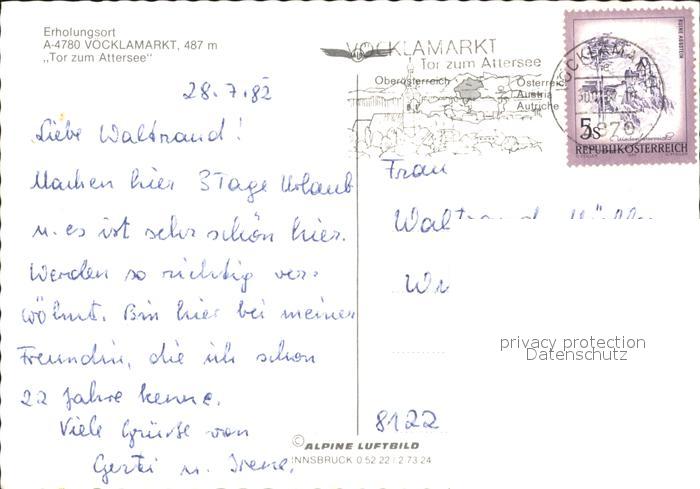 Erholungsort
A-4780 VÖCKLAMARKT, 487 m
„Tor zum Attersee“
28.7.82
Liebe Waltraud!
Machen hier 3 Tage Urlaub
u. es ist sehr schön hier.
Werden so richtig ver=
wöhnt. Bin hier bei meiner
Freundin, die ich schon
22 Jahre kenne.
Viele Grüße von
Gerti u. Irene.
VÖCKLAMARKT
Tor zum Attersee
Oberösterreich
Österreich
Austria
Autriche
5s
REPUBLIK ÖSTERREICH
Frau
Waltraud
privacy protection
Datenschutz
8122
© ALPINE LUFTBILD
INNSBRUCK 0 52 22 / 2 73 24